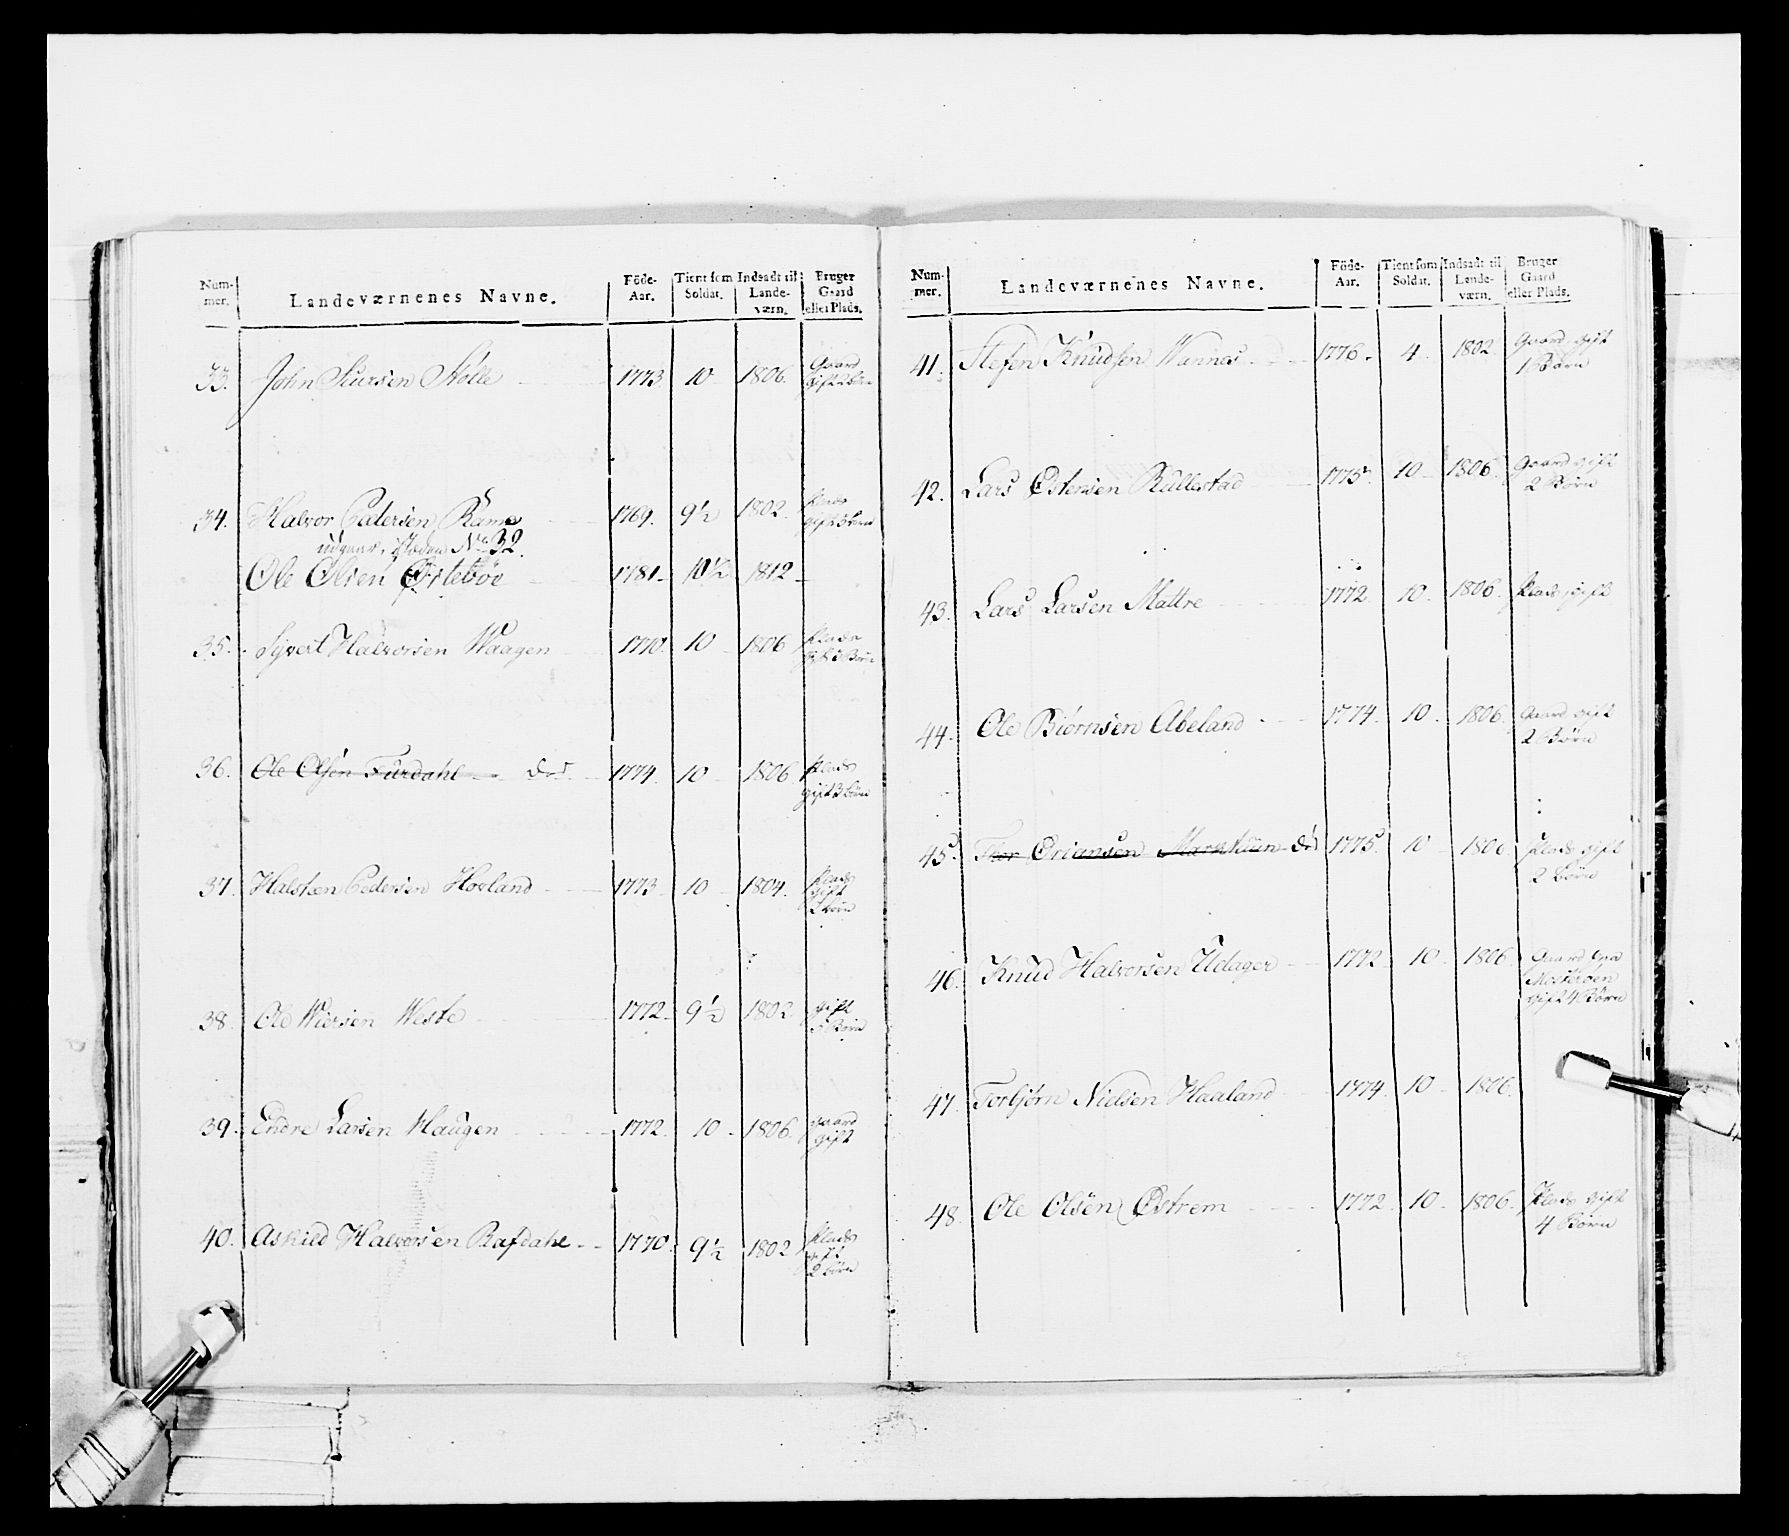 Num-
mer.
Landeværnenes Navne.
Föde-
Aar.
Tient som
Soldat.
Indsadt til
Lande-
værn.
Bruger
Gaard
eller Plads.
33. John Siursen Stölle 1773 10 1806. Gaard
gift 2 börn
34. Halvor Pedersen Rame 1769. 9½ 1802. Plads
gift 3 börn
udgaar, No 32.
Ole Olsen Østeböe 1781 10½ 1812
35. Syvert Halvorsen Waagen 1770 10 1806 Plads
gift 3 Börn
36. Ole Olsen Furdahl död 1774. 10 1806 Plads
gift 3 börn
37. Halsten Pedersen Hovland 1773 10 1804. Plads
gift
börn
38. Ole Wiersen Weste 1772 9½ 1802 gift
3 Börn
39. Endre Larsen Haugen 1772. 10 1806. Gaard
gift
40. Askild Halvorsen Rafdahl 1770 9½ 1802 Plads
gift
2 börn
Num-
mer.
Landeværnenes Navne.
Föde-
Aar.
Tient som
Soldat.
Indsadt til
Lande-
værn.
Bruger
Gaard
eller Plads.
41. Stefen Knudsen Wannes 1776. 4. 1802 Gaard gift
1 Barn
42. Lars Østensen Rullestad 1775 10 1806 Gaard gift
2 Börn
43. Lars Larsen Mattre 1772 10 1806. Plads gift
44. Ole Biörnsen Abeland 1774. 10. 1806 Gaard gift
2 Börn
45. Thor Øriansen död 1775 10 1806 Plads gift
2 Börn
46. Knud Halvorsen Udager 1772 10 1806 Gaard paa
Mosteröen
gift 4 Börn
47. Torbjörn Nielsen Haaland 1774 10 1806.
48. Ole Olsen Østrem 1772. 10 1806. Plads gift
4 Börn